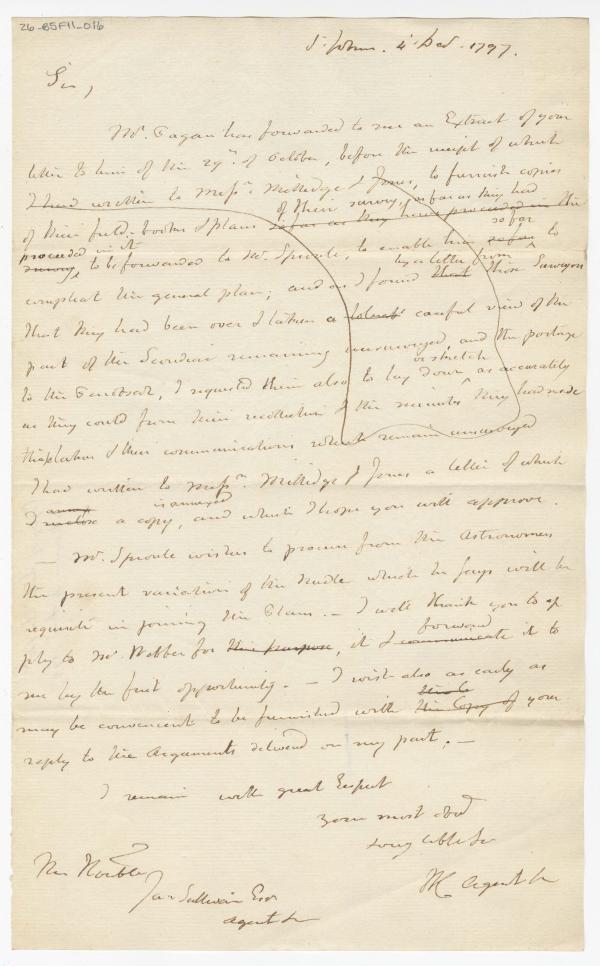 26-B5F11-016
St. Johns. 4th Decr. 1797.
Sir,
Mr. Pagan has forwarded to me an Extract of your
letter to him of the 29th. of October, before the receipt of which
I had written to Messrs. Milledge & Jones, to furnish copies
of their survey, as far as they had
of their field-books & plans so far as they have proceeded in the
proceeded in it so far
survey, to be forwarded to Mr. Sproule, to enable him so far to
by a letter from
compleat the general plan; and as I found that those Surveyors
that they had been over & taken a careful view of the
part of the Scoudiac remaining unsurveyed, and the portage
or sketch
to the Penobscot, I requested them also to lay down as accurately
as they could from their recollection & the minutes they had made
their communications which remain unsurveyed
I had written to Messrs. Milledge & Jones a letter of which
annex is annexed
I inclose a copy, and which I hope you will approve.
— Mr. Sproule wishes to procure from the Astronomers
the present variation of the Needle which he says will be
requisite in joining the Plans. — I will thank you to ap
forward
ply to Mr. Webber for this purpose, it & communicate it to
me by the first opportunity. — I wish also as early as
may be convenient to be furnished with the Copy of your
reply to the Arguments delivered on my part. —
I remain with great Respect
Your most obed
hum ble Sr
The Honble
Jas Sullivan Esqr
Agent &c
Agent &c